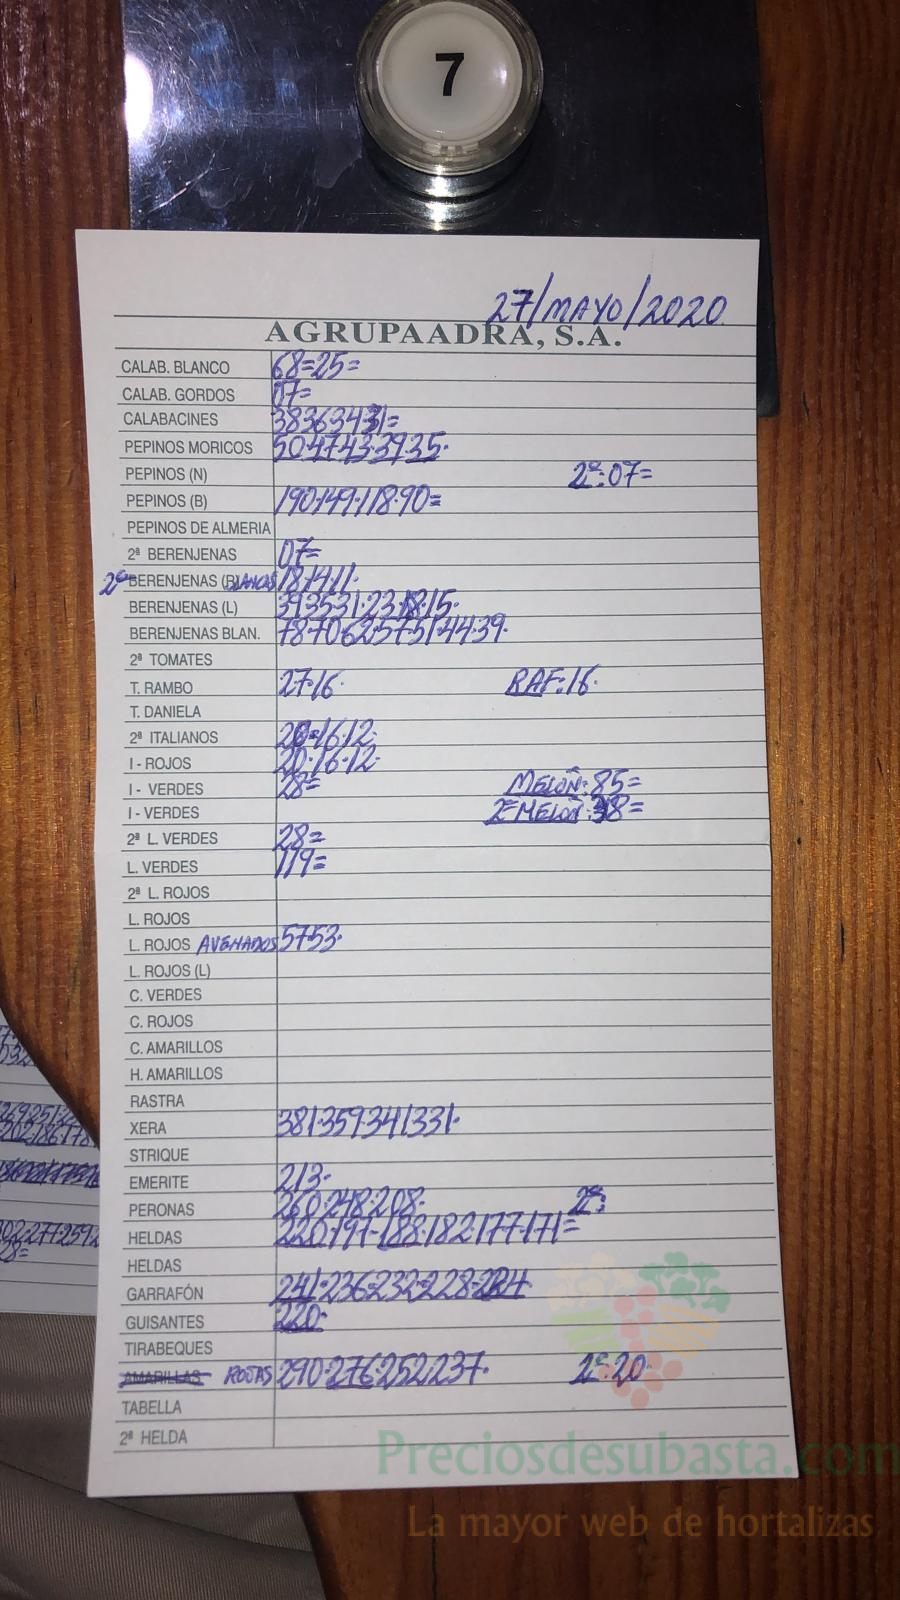 7
27/MAYO/2020
AGRUPAADRA, S.A.
CALAB. BLANCO 68=25=
CALAB. GORDOS 07=
CALABACINES 38363431=
PEPINOS MORICOS 50·47·43·39·35·
PEPINOS (N) 2ª:07=
PEPINOS (B) 190·149·118·90=
PEPINOS DE ALMERIA
2ª BERENJENAS 07=
2ª BERENJENAS (BLANCAS 18·14·11·
BERENJENAS (L) 39·35·31·23·18·15·
BERENJENAS BLAN. 78·70·62·57·51·44·39·
2ª TOMATES
T. RAMBO 27·16· RAF:16·
T. DANIELA
2ª ITALIANOS 20·16·12·
I - ROJOS 20·16·12·
I - VERDES 28= MELOÑ:85=
I - VERDES 2ª MELOÑ:38=
2ª L. VERDES 28=
L. VERDES 119=
2ª L. ROJOS
L. ROJOS
L. ROJOS AVENADOS 57·53·
L. ROJOS (L)
C. VERDES
C. ROJOS
C. AMARILLOS
H. AMARILLOS
RASTRA
XERA 381·359·341·331·
STRIQUE
EMERITE 213·
PERONAS 260·248·208· 2ª:
HELDAS 220·197·188·182·177·171=
HELDAS
GARRAFÓN 241·236·232·228·224
GUISANTES 220·
TIRABEQUES
AMARILLAS ROJAS 290·276·252·237· 2ª:20·
TABELLA
2ª HELDA
Preciosdesubasta.com
La mayor web de hortalizas